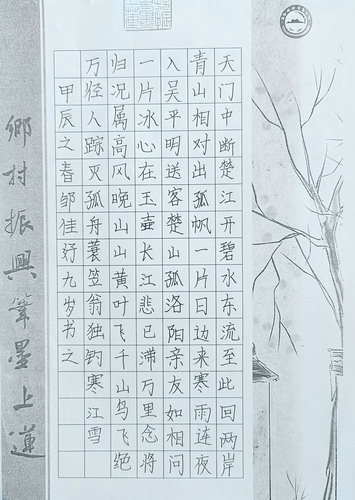 天门中断楚江开碧水东流至此回两岸
青山相对出孤帆一片日边来寒雨连夜
入吴平明送客楚山孤洛阳亲友如相问
一片冰心在玉壶长江悲已滞万里念将
归况属高风晚山山黄叶飞千山鸟飞绝
万径人踪灭孤舟蓑笠翁独钓寒江雪
甲辰之春邹佳妤九岁书之
鄉村振興筆墨上